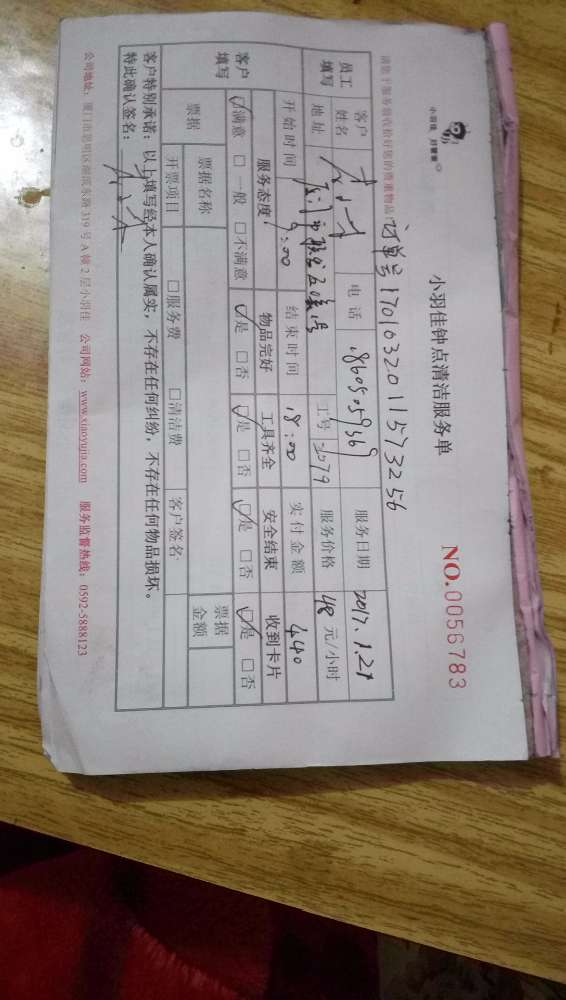 小羽佳 好管家
小羽佳钟点清洁服务单
NO.0056783
请您于服务前收拾好您的贵重物品!
订单号1701032011573256
员工填写 客户姓名 电话 服务日期 2017.1.21
地址 工号 2079 服务价格 48 元/小时
开始时间 9:00 结束时间 18:00 实付金额 440
客户填写 服务态度: 物品完好 工具齐全 安全结束 收到卡片
☑满意 □一般 □不满意 ☑是 □否 ☑是 □否 ☑是 □否 ☑是 □否
票据 票据名称 票据金额
开票项目 □服务费 □清洁费 客户签名
客户特别承诺:以上填写经本人确认属实,不存在任何纠纷,不存在任何物品损坏。
特此确认签名:
公司地址:厦门市思明区湖滨东路319号A幢2层小羽佳 公司网站:www.xiaoyujia.com 服务监督热线:0592-5888123